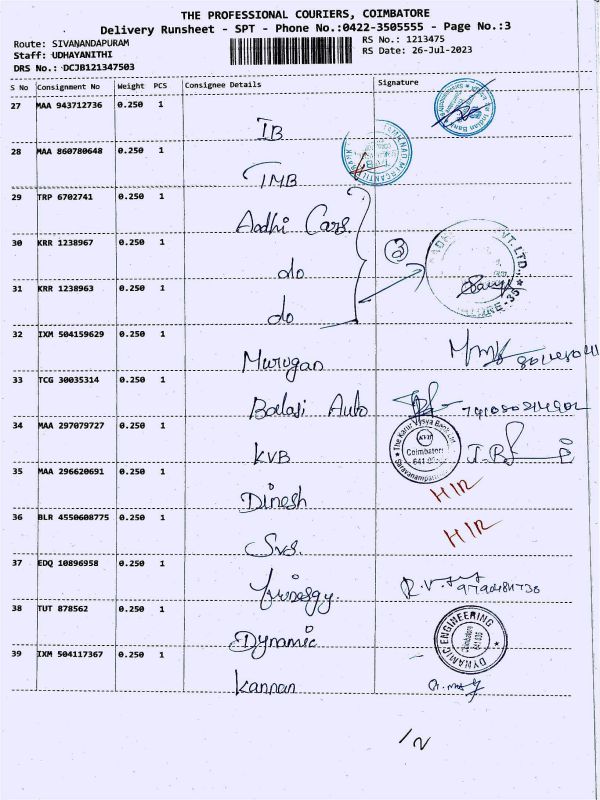 THE PROFESSIONAL COURIERS, COIMBATORE
Delivery Runsheet - SPT - Phone No.:0422-3505555 - Page No.:3
Route: SIVANANDAPURAM
RS No.: 1213475
Staff: UDHAYANITHI
RS Date: 26-Jul-2023
DRS No.: DCJB121347503
S No Consignment No Weight PCS Consignee Details Signature
27 MAA 943712736 0.250 1
IB
28 MAA 860780648 0.250 1
TMB
29 TRP 6702741 0.250 1
Aadhi Cars.
30 KRR 1238967 0.250 1
do
3
31 KRR 1238963 0.250 1
do
32 IXM 504159629 0.250 1
Murugan
33 TCG 30035314 0.250 1
Balaji Auto
34 MAA 297079727 0.250 1
KVB
The Karur Vysya Bank Ltd
KVB
Coimbatore
35 MAA 296620691 0.250 1
Dinesh
HIR
36 BLR 4550608775 0.250 1
Svs.
HIR
37 EDQ 10896958 0.250 1
38 TUT 878562 0.250 1
Dynamic
DYNAMIC ENGINEERING
39 IXM 504117367 0.250 1
Kannan